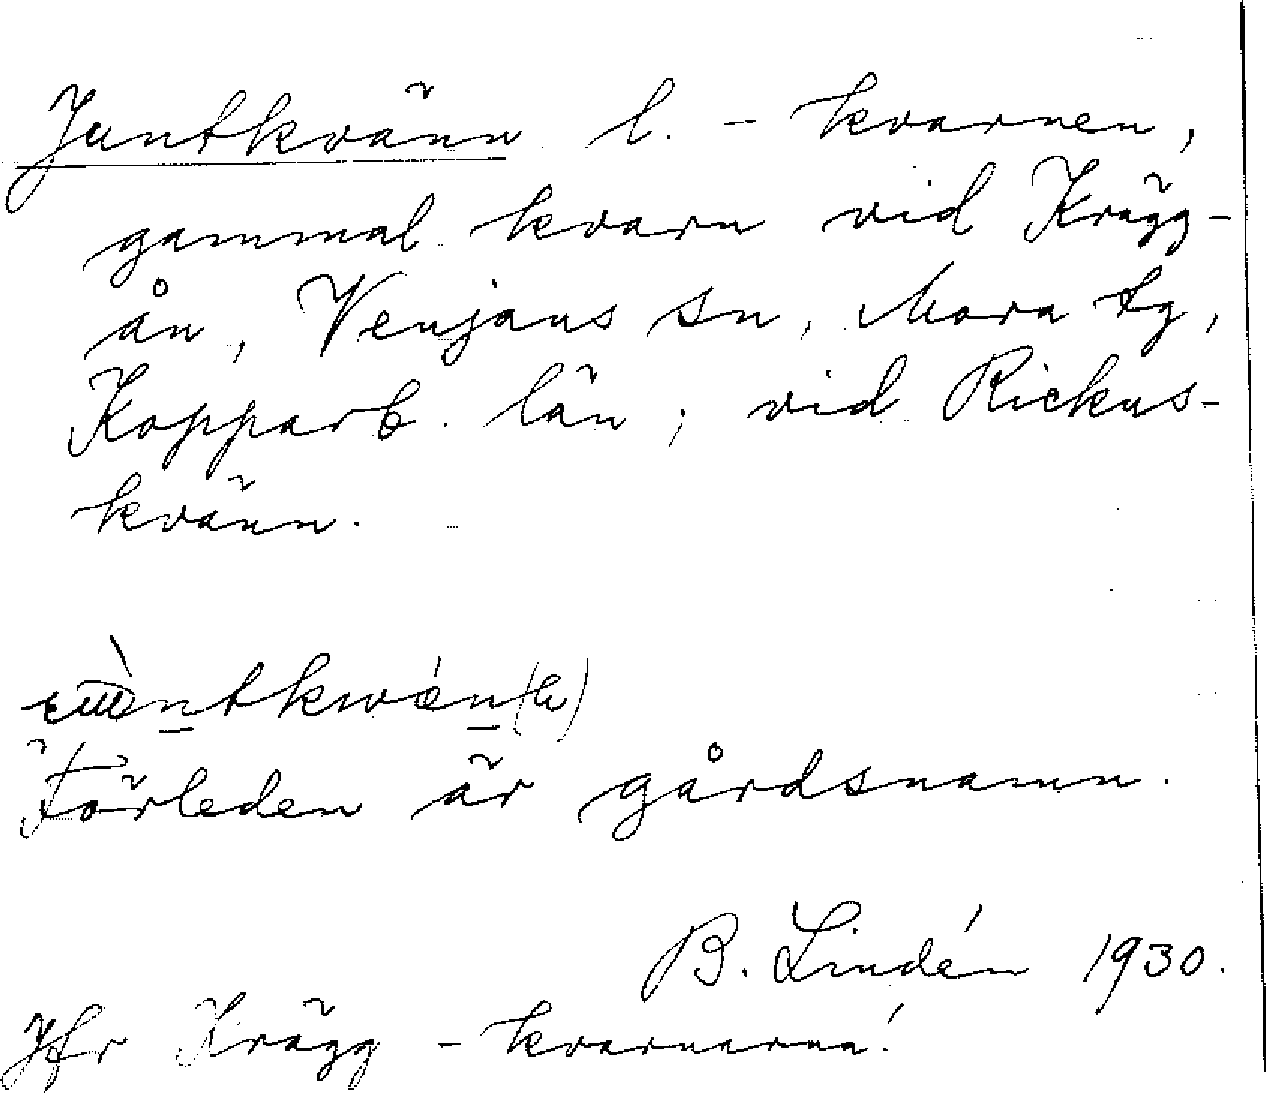 Juntkvänn l. - kvarnen,
gammal kvarn vid Krägg-
ån, Venjans sn, Mora tg,
Kopparb. län; vid Rickus-
kvänn.
Förleden är gårdsnamn.
B. Lindén 1930.
Jfr Krägg - kvarnarna!